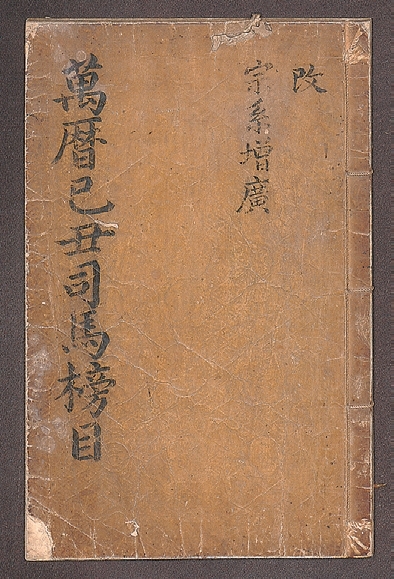 改
宗系增廣
萬曆己丑司馬榜目